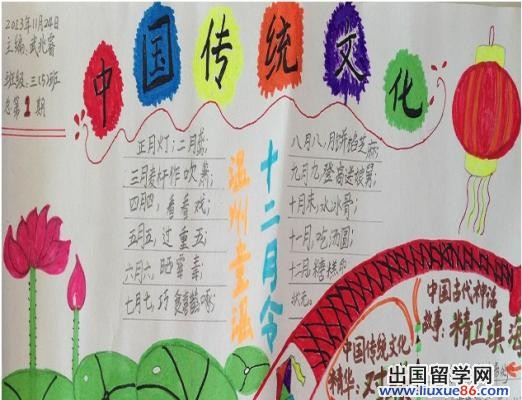 2013年11月24日
主编：武兆睿
班级：三（5）班
总第1期
中国传统文化
正月灯，二月鹞，
三月麦杆作吹箫，
四月四，看看戏，
五月五，过重五，
六月六，晒霉毒，
七月七，巧
温州童谣
十二月令
八月八，月饼馅芝麻，
九月九，登高送娘舅，
十月末，水冰骨，
十一月，吃汤圆，
十二月，糖糕印
状元。
中国古代神话
故事：精卫填海
中国传统文化
精华：
出国留学网
www.liuxue86.com